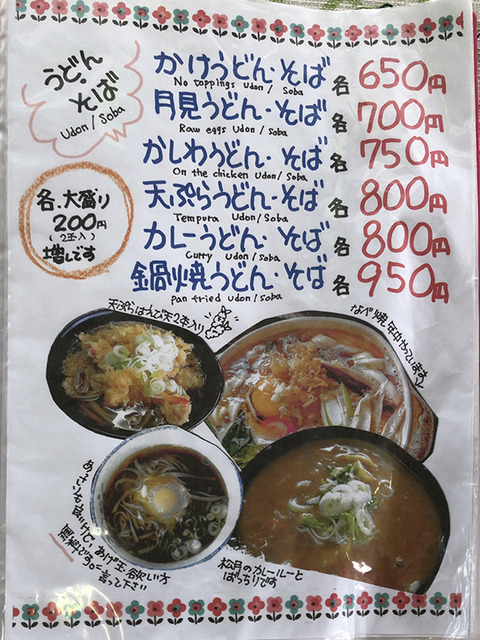 うどん
・そば
Udon / Soba
かけうどん・そば 各 650円
No toppings Udon / Soba
月見うどん・そば 各 700円
Raw eggs Udon / Soba
かしわうどん・そば 各 750円
On the chicken Udon / Soba
天ぷらうどん・そば 各 800円
Tempura Udon / Soba
カレーうどん・そば 各 800円
Curry Udon / Soba
鍋焼うどん・そば 各 950円
Pan fried Udon / Soba
各、大盛り
200円
(2玉入)
増しです
天ぷらはえび天2本入り
なべ焼き年中やっています
あっさりも良いけど、あげ玉欲しい方
無料ですので
言って下さい
松月のカレールーと
ばっちりです